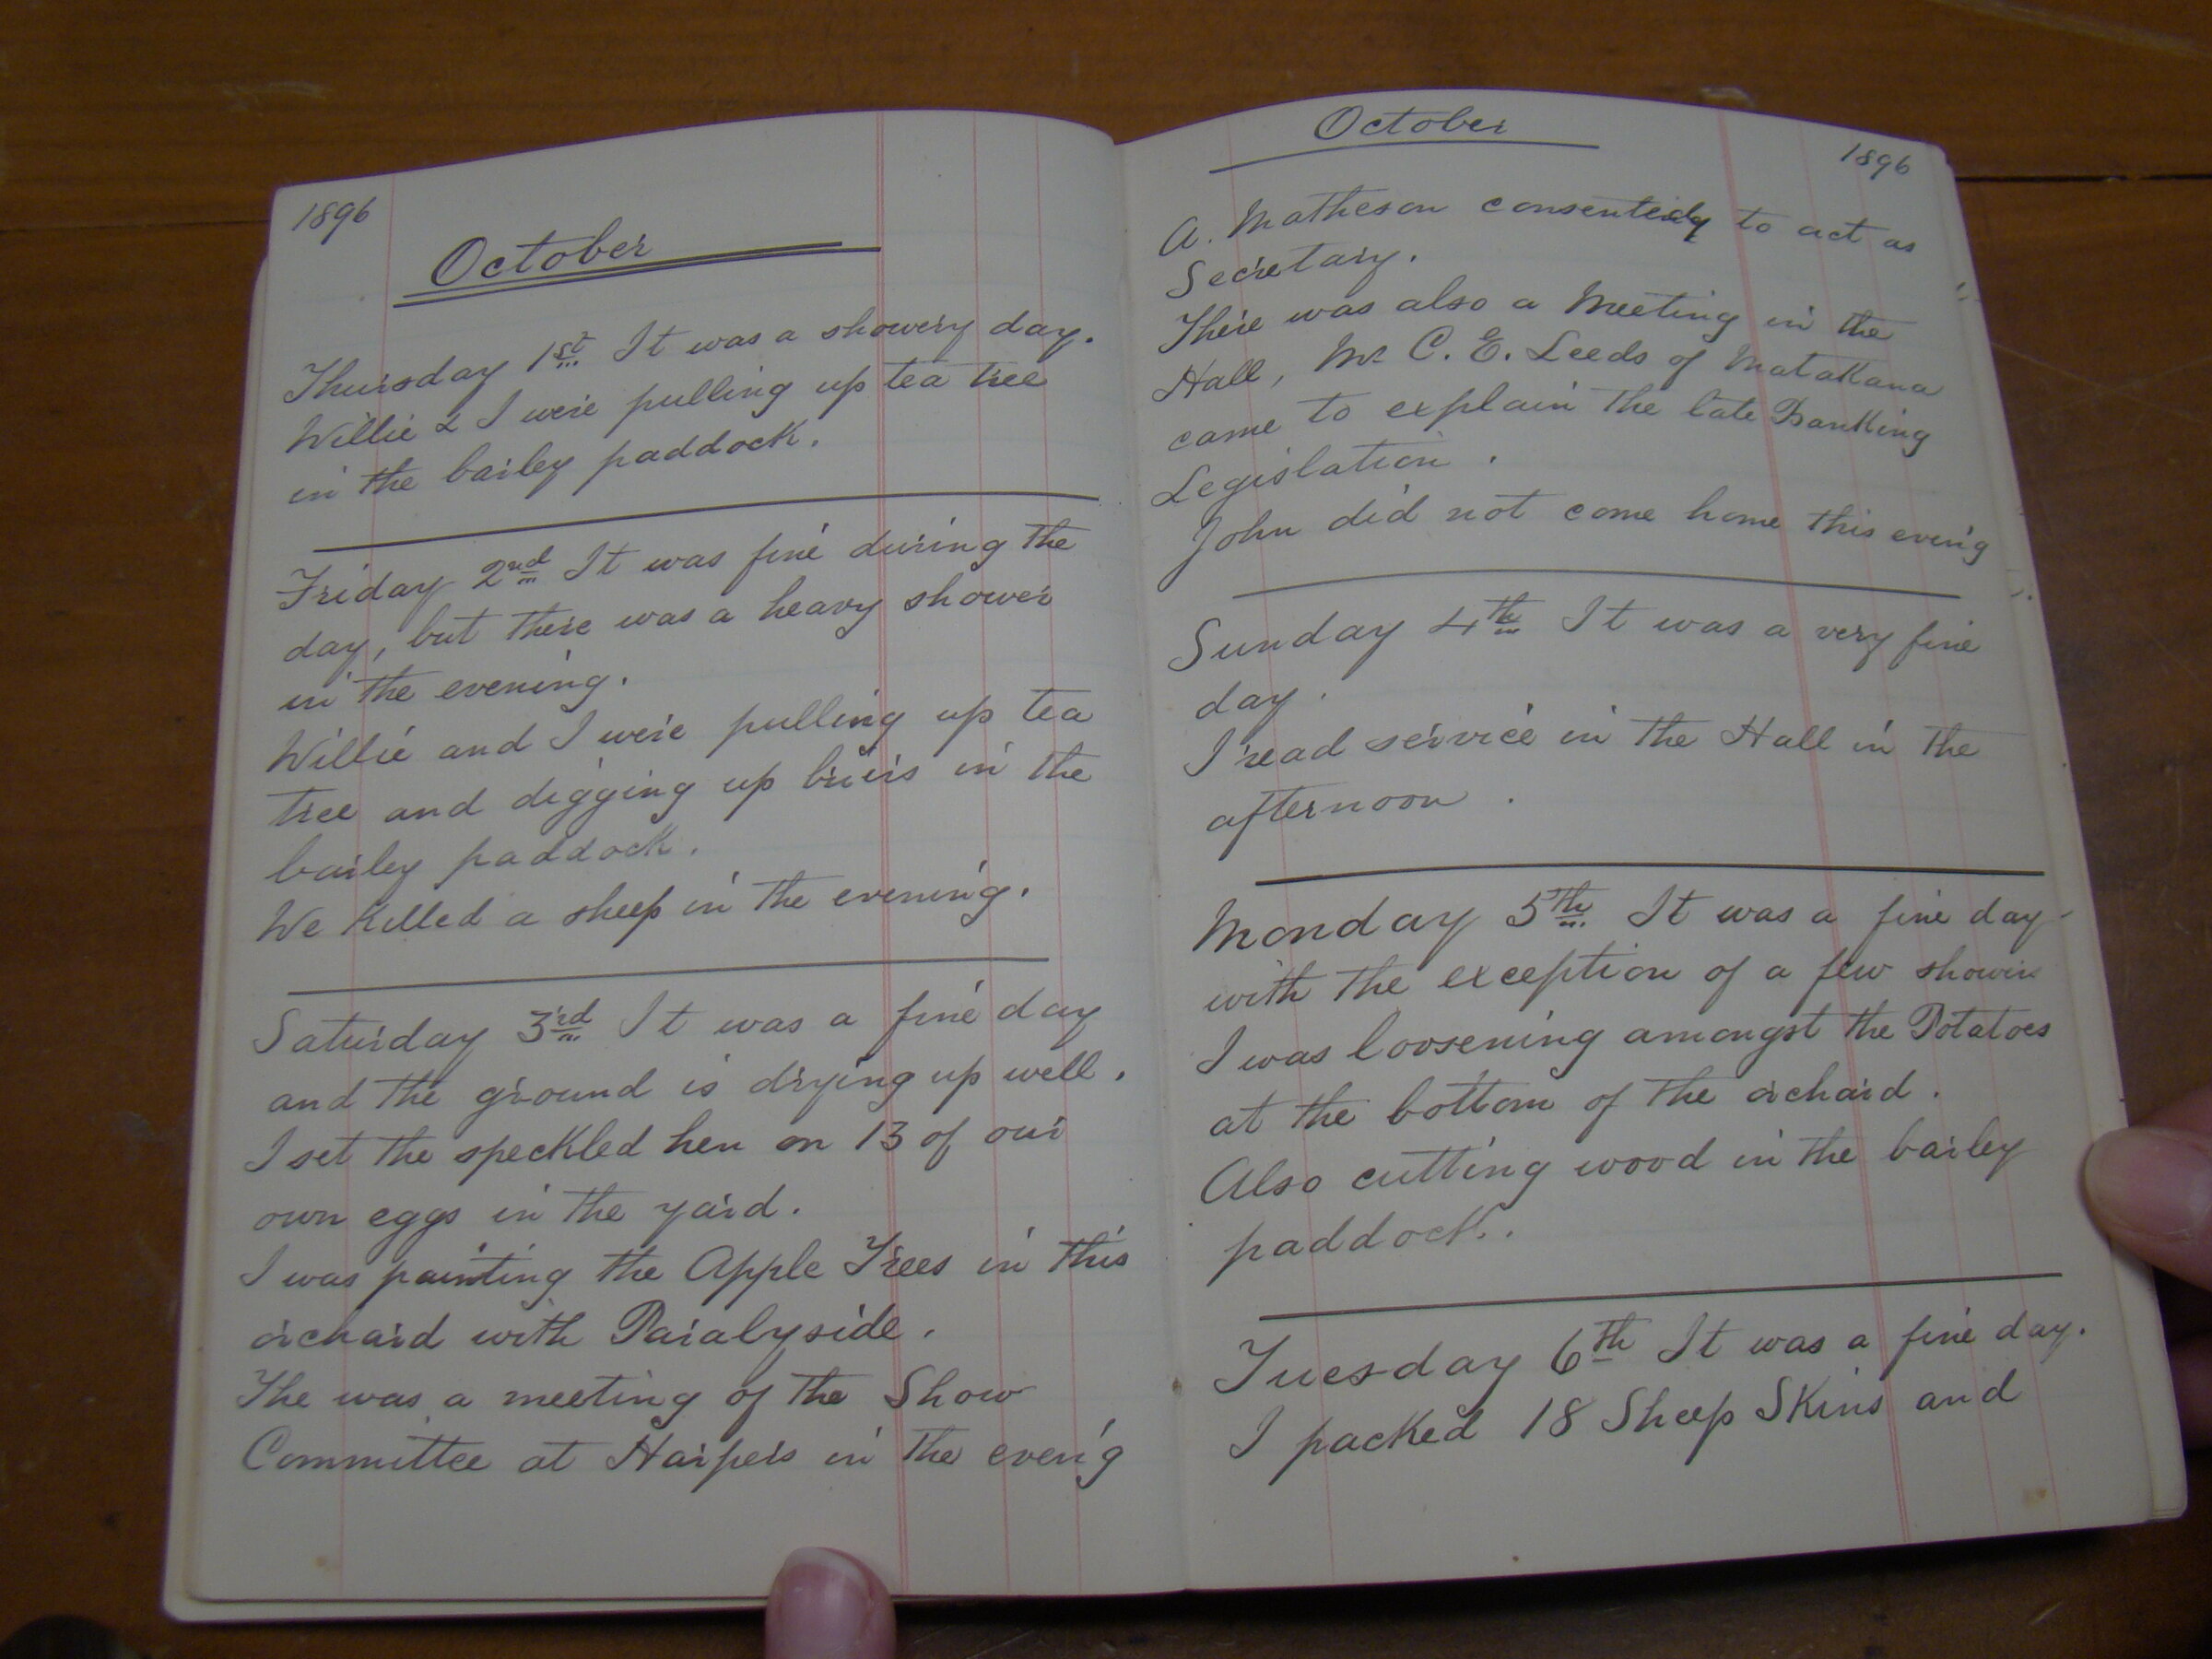 1896
October
Thursday 1st It was a showery day.
Willie & I were pulling up tea tree
in the barley paddock.
Friday 2nd It was fine during the
day, but there was a heavy shower
in the evening.
Willie and I were pulling up tea
tree and digging up briers in the
barley paddock.
We killed a sheep in the evening.
Saturday 3rd It was a fine day
and the ground is drying up well.
I set the speckled hen on 13 of our
own eggs in the yard.
I was painting the Apple Trees in this
orchard with Paralyside.
The was a meeting of the Show
Committee at Harper's in the even'g
October
1896
A. Matheson to act as
Secretary.
There was also a Meeting in the
Hall, Mr C. E. Leeds of Matakana
came to explain the late Banking
Legislation.
John did not come home this even'g
Sunday 4th It was a very fine
day.
I read service in the Hall in the
afternoon.
Monday 5th It was a fine day
with the exception of a few showers
I was loosening amongst the Potatoes
at the bottom of the orchard.
Also cutting wood in the barley
paddock.
Tuesday 6th It was a fine day.
I packed 18 Sheep Skins and